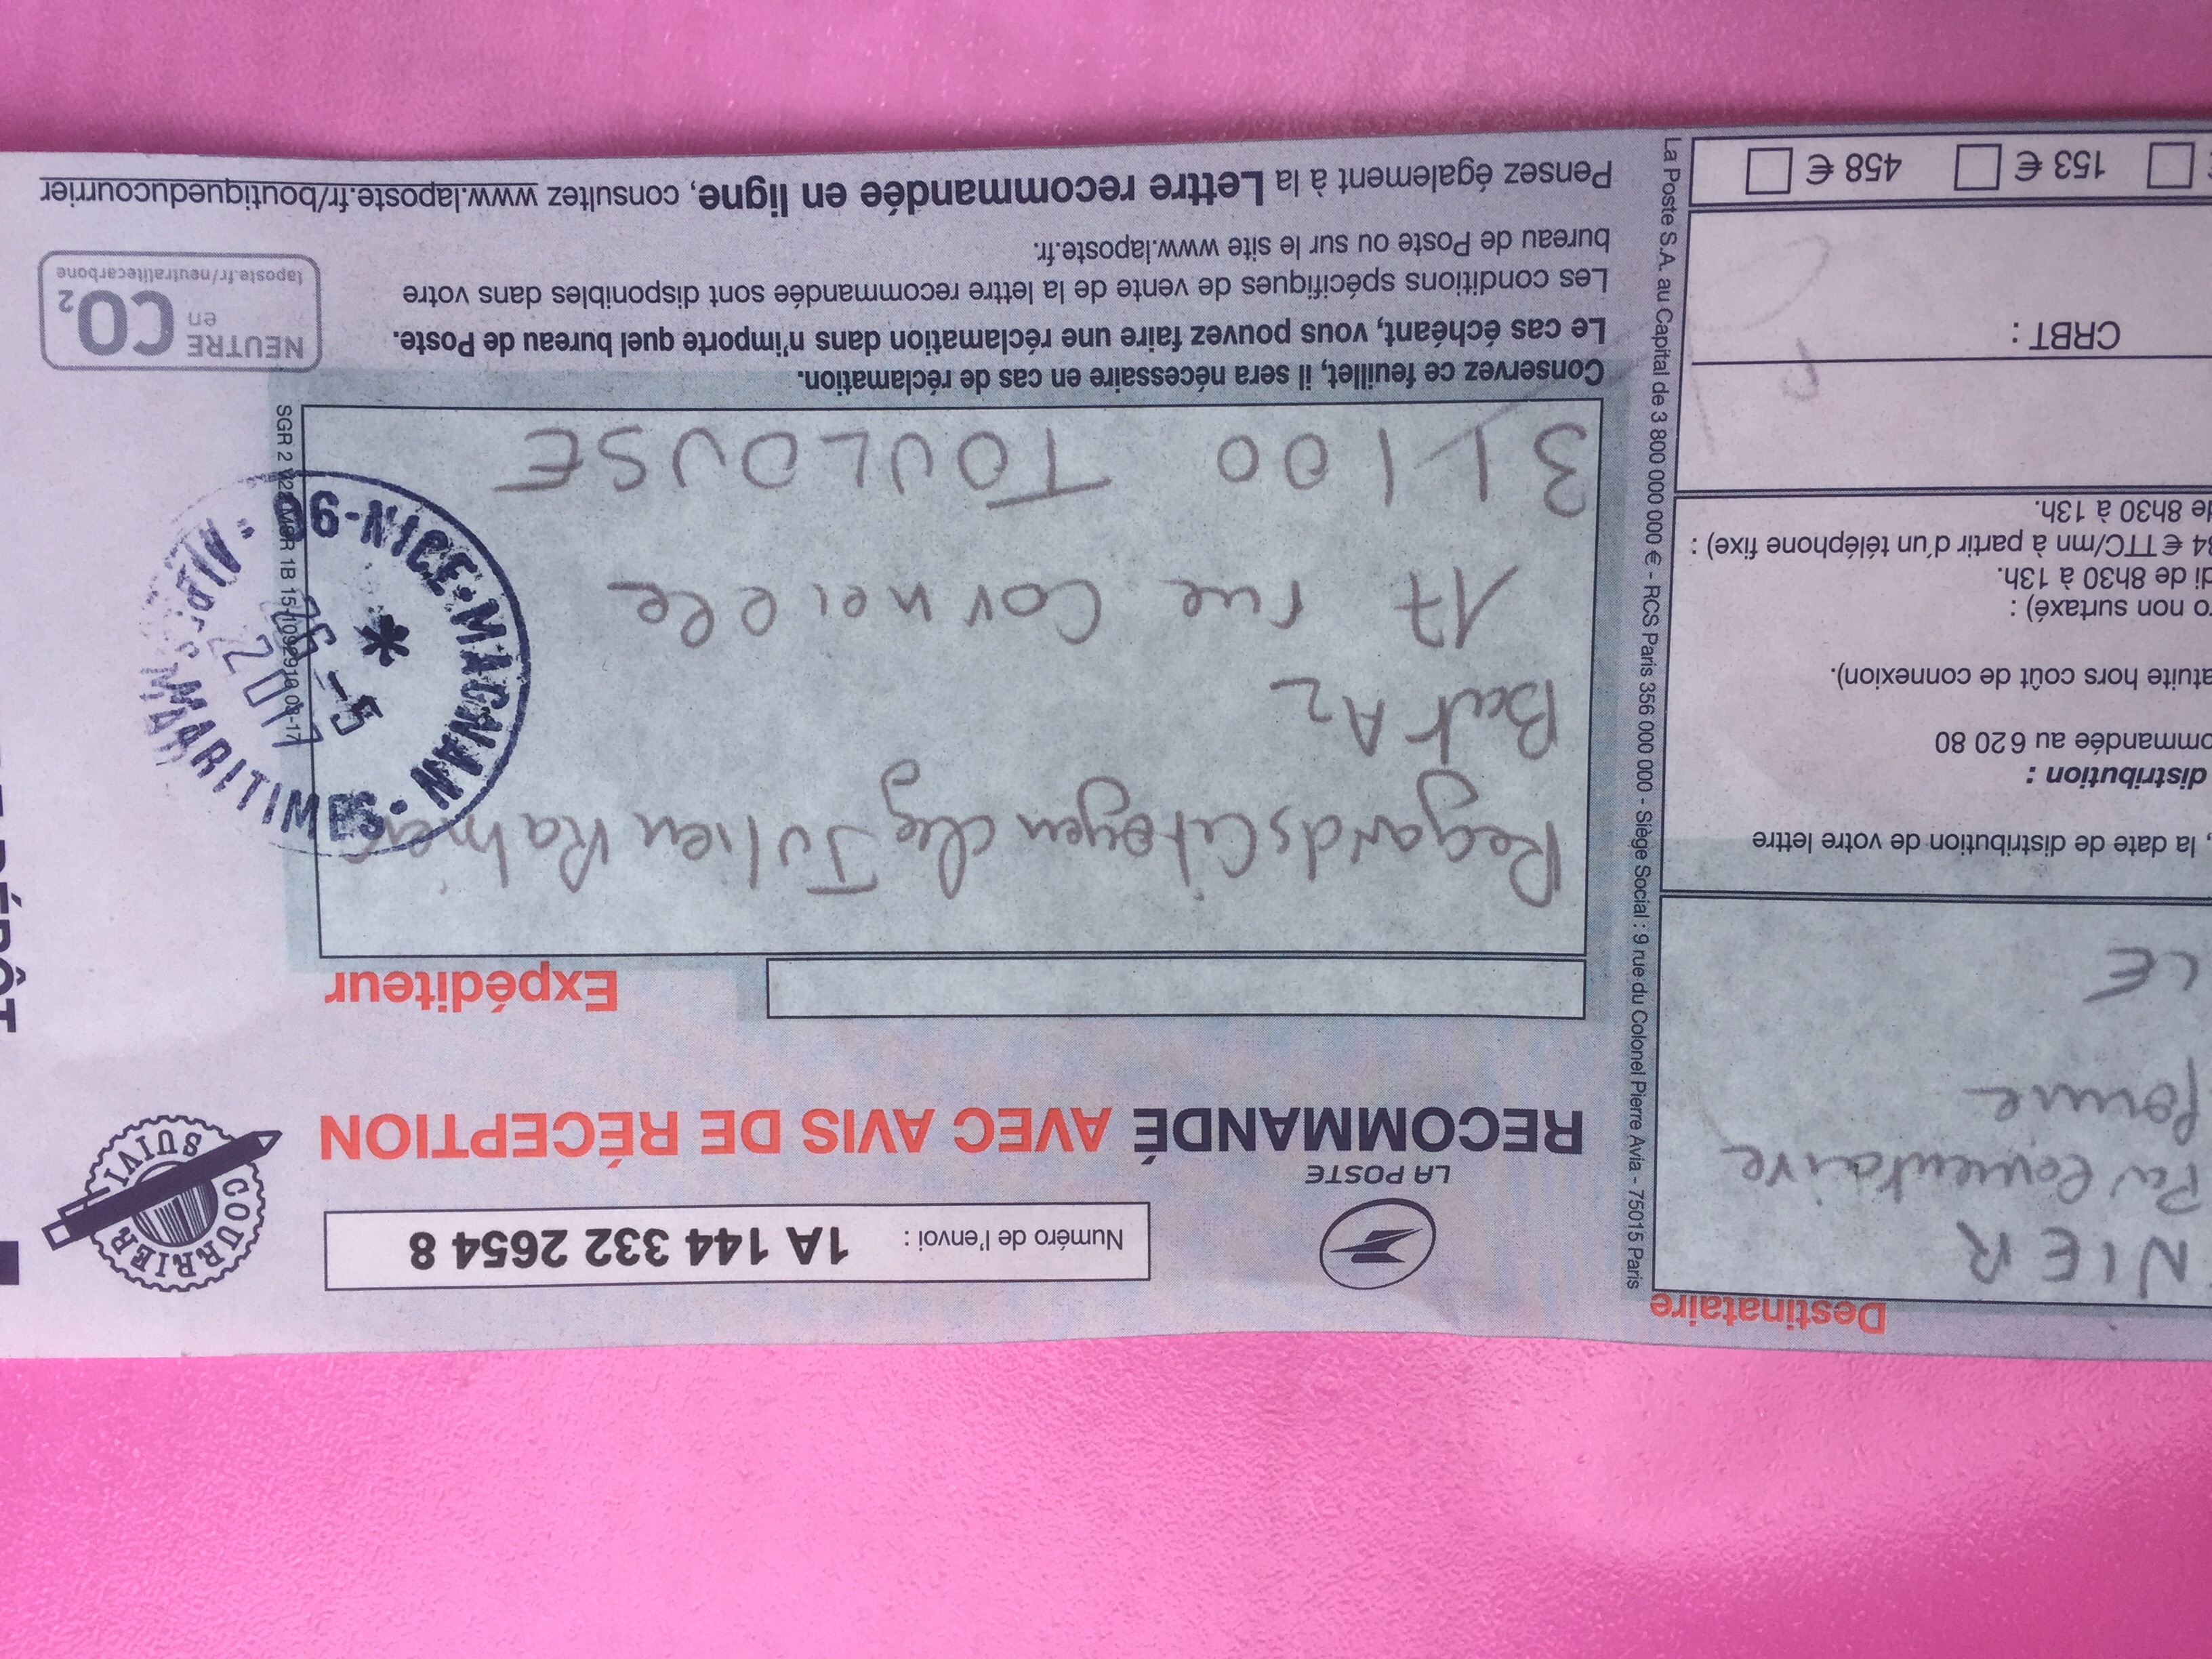 Destinataire
NIER
Parlementaire
Permanence
LE
, la date de distribution de votre lettre
distribution :
ommandée au 6 20 80
atuite hors coût de connexion).
o non surtaxé) :
di de 8h30 à 13h.
34 € TTC/mn à partir d'un téléphone fixe) :
de 8h30 à 13h.
CRBT :
153 €
458 €
La Poste S.A. au Capital de 3 800 000 000 € - RCS Paris 356 000 000 - Siège Social : 9 rue du Colonel Pierre Avia - 75015 Paris
LA POSTE
Numéro de l'envoi : 1A 144 332 2654 8
RECOMMANDÉ AVEC AVIS DE RÉCEPTION
COURRIER SUIVI
Expéditeur
Regards Citoyen chez Julien
Bat A2
17 rue Corneille
31100 TOULOUSE
06-NICE-MAGNAN
ALPES MARITIMES
2017
SGR 2 V2
Conservez ce feuillet, il sera nécessaire en cas de réclamation.
Le cas échéant, vous pouvez faire une réclamation dans n'importe quel bureau de Poste.
Les conditions spécifiques de vente de la lettre recommandée sont disponibles dans votre
bureau de Poste ou sur le site www.laposte.fr.
Pensez également à la Lettre recommandée en ligne, consultez www.laposte.fr/boutiqueducourrier
NEUTRE
en
CO2
laposte.fr/neutralitecarbone
DÉPÔT